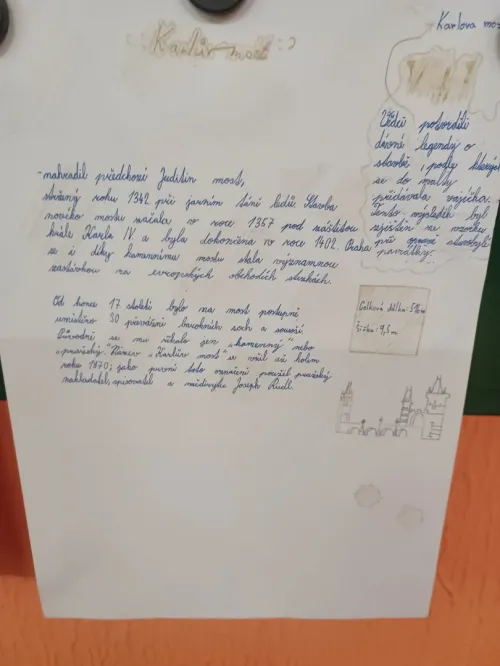 Karlův most :)
-nahradil předchozí Juditin most,
stržený roku 1342 při jarním tání ledů. Stavba
nového mostu začala v roce 1357 pod záštitou
krále Karla IV a byla dokončena v roce 1402. Praha
se i díky kamennému mostu stala významnou
zastávkou na evropských obchodních stezkách.
Od konce 17 století bylo na most postupně
umístěno 30 převážně barokních soch a sousoší
Původně se mu říkalo jen „kamenný" nebo
„pražský". Název „Karlův most" se vžil až kolem
roku 1870; jako první toto označení použil pražský
nakladatel, spisovatel a Joseph Rudl.
Karlova
Vědci potvrdili
dávné legendy o
stavbě, podle kterých
se do malty
přidávala vajíčka.
Tento výsledek byl
zjištěn ze vzorku
při opravě stavby
památky.
Celková délka: 516m
šířka: 9,5m